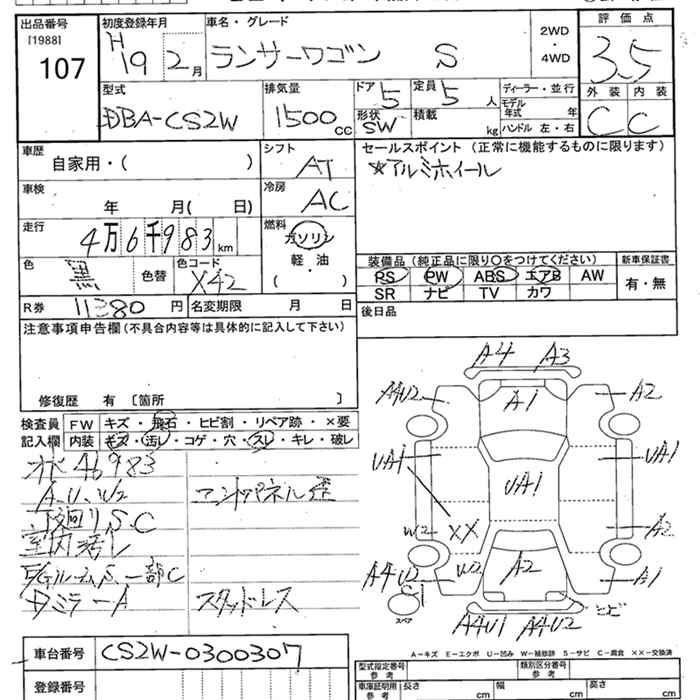 出品番号
[1988]
107
初度登録年月
H19 2月
車名・グレード
ランサーワゴン S
2WD
・
4WD
評価点
3.5
外装 内装
C C
型式
DBA-CS2W
排気量
1500cc
ドア
5
定員
5人
形状
SW
積載
kg
ディーラー・並行
モデル年式 年
ハンドル 左・右
車歴
自家用・( )
シフト
AT
セールスポイント (正常に機能するものに限ります)
☆アルミホイール
車検
年 月( 日)
冷房
AC
走行
4万6千983km
燃料
ガソリン
軽・油
・
( )
色
黒
色替
色コード
X42
装備品 (純正品に限り○をつけてください)
PS PW ABS エアB AW
SR ナビ TV カワ
新車保証書
有・無
R券
11380円
名変期限 月 日
後日品
注意事項申告欄(不具合内容等は具体的に記入して下さい)
修復歴 有 〔箇所 〕
検査員記入欄
FW キズ・飛石・ヒビ割・リペア跡・×要
内装 キズ・汚レ・コゲ・穴・スレ・キレ・破レ
46983
A、U、W2
S、C
室内汚レ
E/Gルーム、S、一部C
スタッドレス
A4 A3
A4U2
A1
A2
UA1
UA1
UA1
XX
W2
A2
A4U2
W2
A2
A1
S1
スペア
A4U1 A4U2
ヒビ
車台番号
CS2W-0300307
登録番号
A-キズ E-エクボ U-凹み W-補修跡 S-サビ C-腐食 XX-交換済
型式指定番号
参考
類別区分番号
参考
車庫証明用
参考
長さ cm
幅 cm
高さ cm